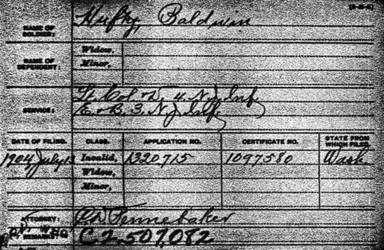 NAME OF SOLDIER: Hufty, Baldwin
NAME OF DEPENDENT: Widow,
Minor,
SERVICE: Lt Col & D, 4 N.J. Inf.
E & B. 3. N.J. Inf.
DATE OF FILING. CLASS. APPLICATION NO. CERTIFICATE NO. STATE FROM WHICH FILED.
1904 July Invalid, 1320715 1097580 Wash
Widow,
Minor,
ATTORNEY: Pennebaker
C-2-507,082